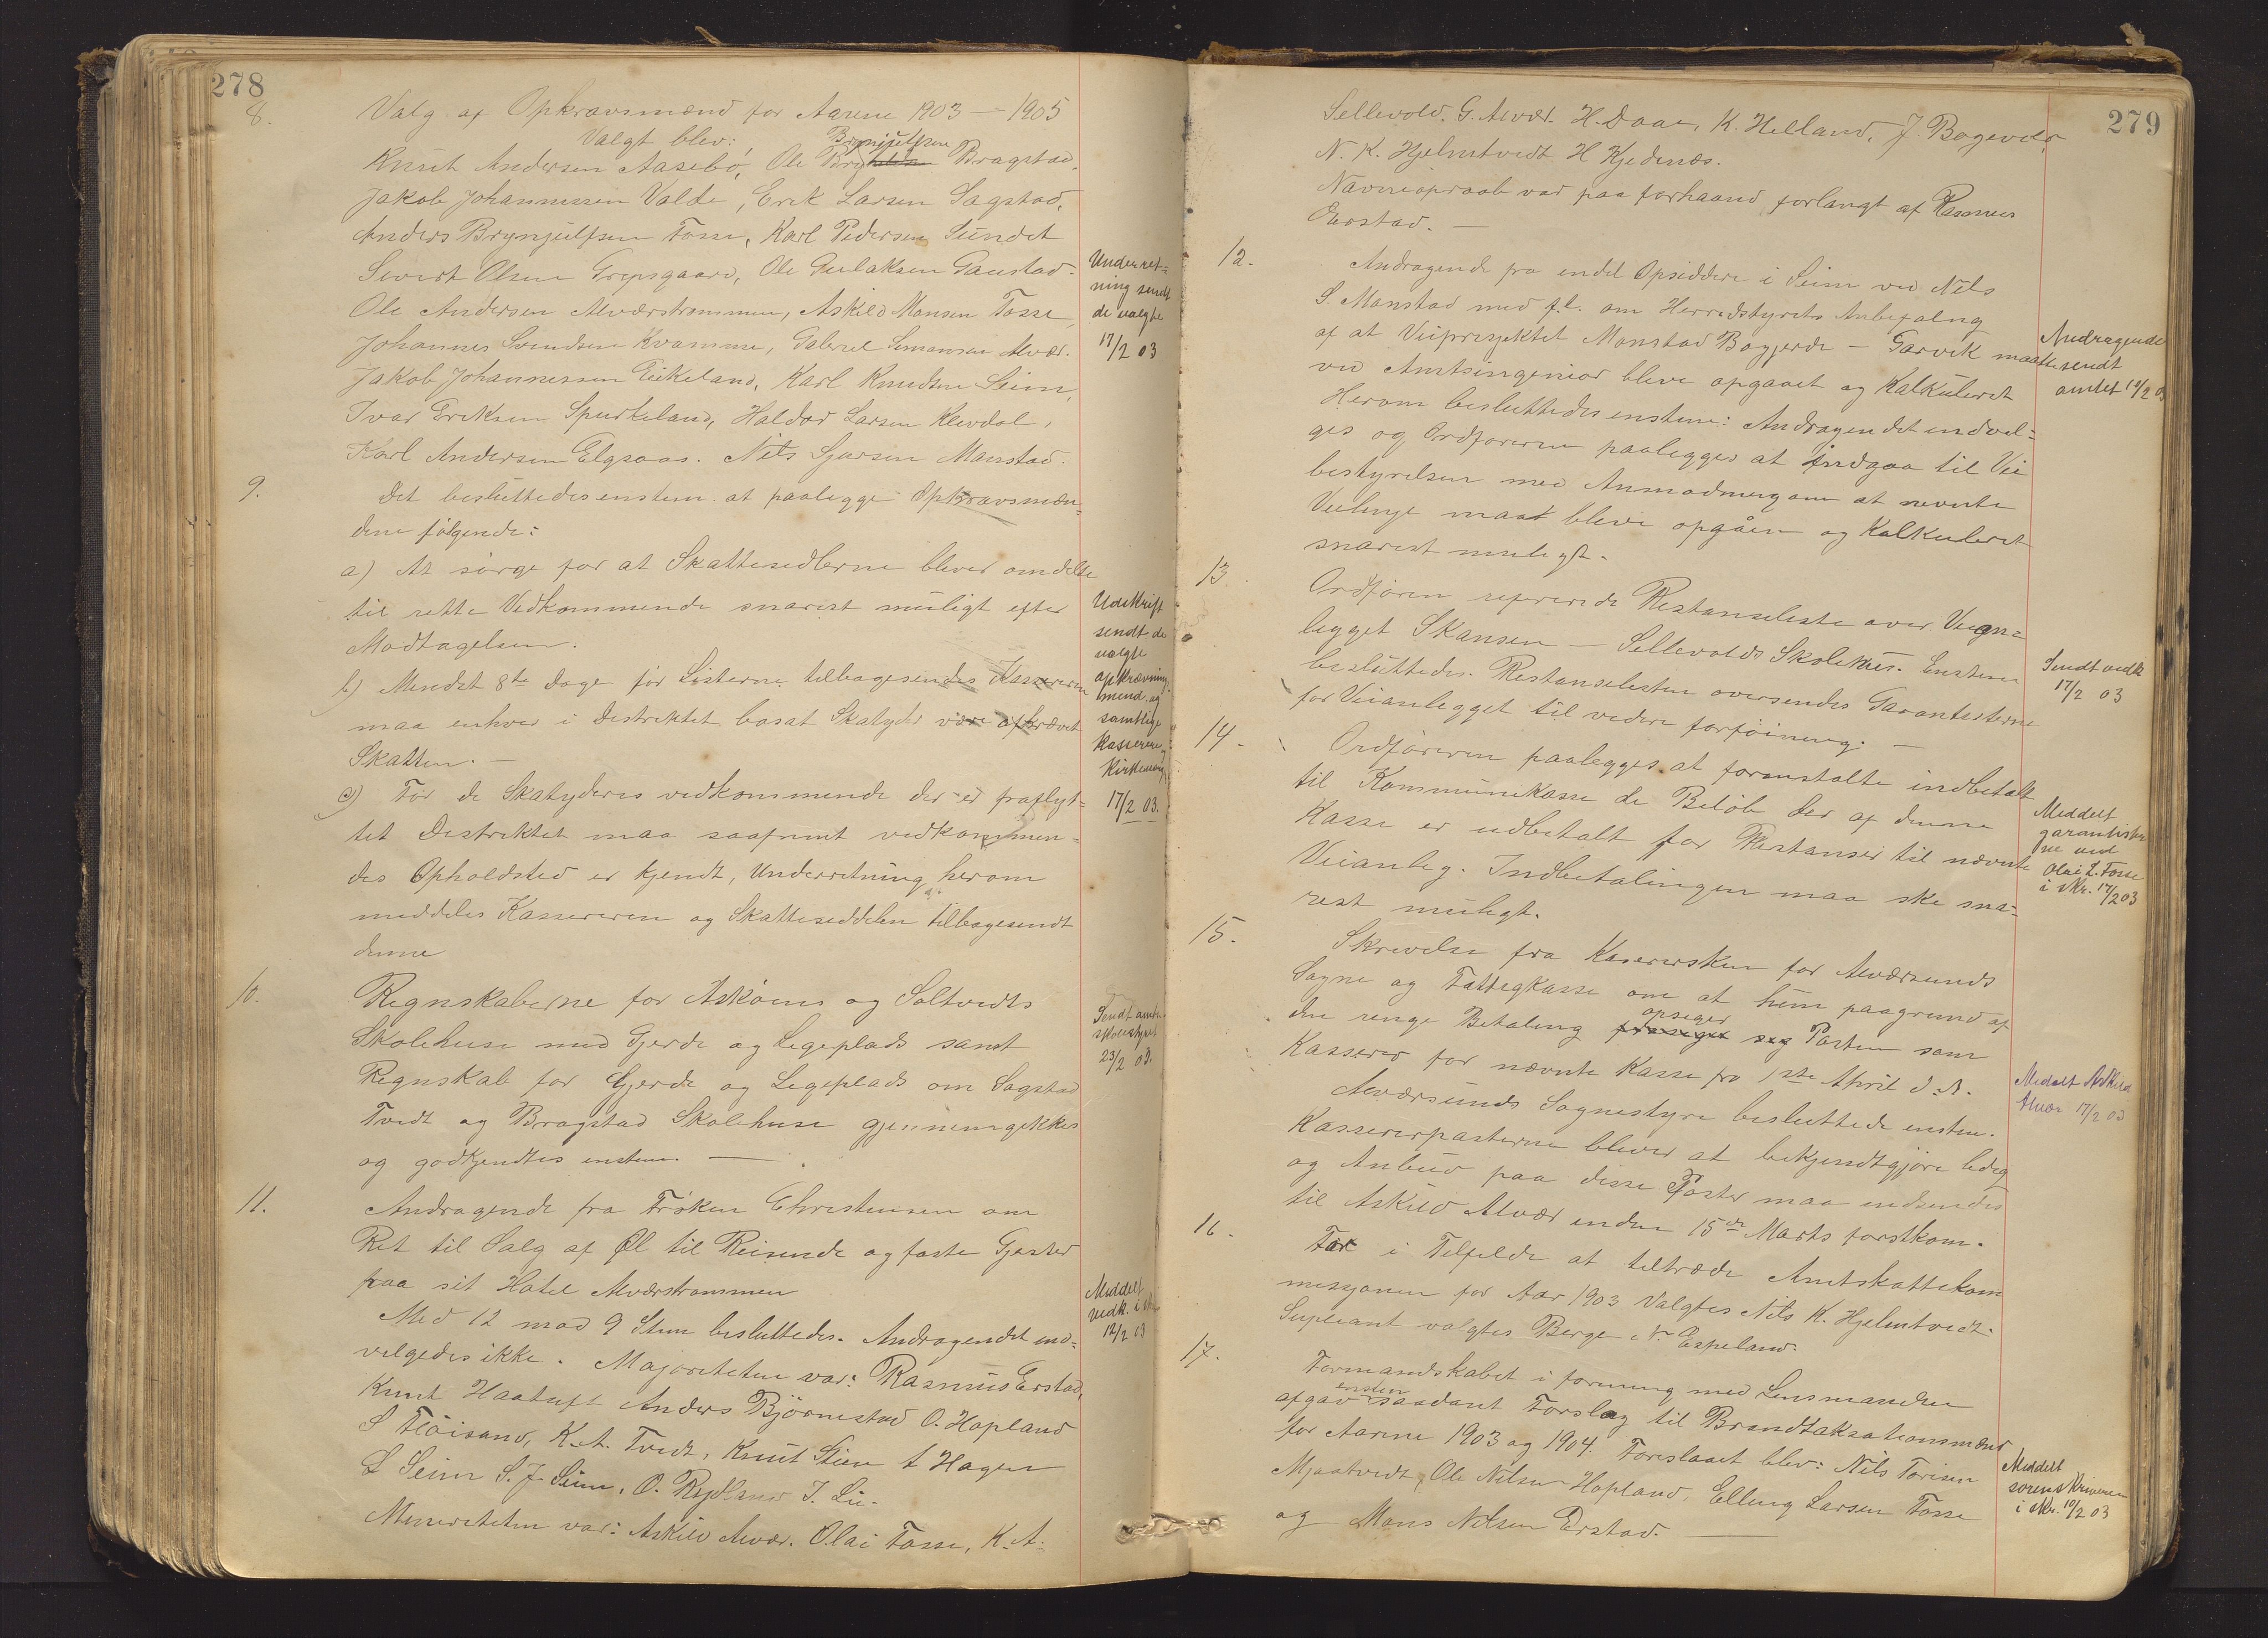 278
8. Valg af Opkravsmænd for Aarene 1903 — 1905
Valgt blev:
Brynjulfsen
Knut Andersen Aasebø, Ole Bragstad,
Jakob Johannessen Valde, Erik Larsen Sagstad,
Anders Brynjulfsen Fosse, Karl Pedersen Sundet
Sivert Olsen Grepsgaard, Ole Gulaksen Gaustad.
Ole Andersen Alværstrømmen, Askild Monsen Fosse,
Johannes Svendsen Kvamme, Gabriel Simonsen Alvær.
Jakob Johannessen Eikeland, Karl Knudsen Seim,
Ivar Eriksen Spurkeland, Haldor Larsen Klevdal,
Karl Andersen Elgsaas. Nils Sjursen Manstad.
Underret-
ning sendt
de valgte
17/2 03
9. Det besluttedes enstem. at paalegge Opkravsmæn-
dene følgende:
a) At sørge for at Skattesedlerne bliver omdelte
til rette Vedkommende snarest muligt efter
Modtagelsen.
b) Mindst 8te Dage før Listerne tilbagesendes Kassereren
maa enhver i Distriktet bosat Skatyder være afkrævet
Skatten. —
c) For de Skatyderes vedkommende der er fraflyt-
tet Distriktet maa saafremt vedkommen-
des Opholdsted er kjendt, Underretning herom
meddeles Kassereren og Skatteseddelen tilbagesendt
denne
Udskrift
sendt de
valgte
opkrævnings-
mend og
samtlige
Kasserere og
Kirkeverg
17/2 03.
10. Regnskaberne for Askøens og Soltvedts
Skolehuse med Gjerde og Legeplads samt
Regnskab for Gjerde og Legeplads om Sagstad
Tvedt og Bragstad Skolehuse gjennemgikkes
og godkjendtes enstem. —
Sendt amts
skolestyret
23/2 03.
11. Andragende fra Frøken Christensen om
Ret til Salg af Øl til Reisende og faste Gjester
paa sit Hotel Alværstrømmen
Med 12 mod 9 Stem besluttedes. Andragendet ind-
vilgedes ikke. Majoriteten var: Rasmus Erstad,
Knut Haatuft Anders Bjørnestad O. Hopland
S Fløisand, K. A. Tvedt, Knut Stien A Hagen
L Seim S. J. Seim, O. Rydland I. Lie.
Minoriteten var: Askild Alvær. Olai Fosse, K. A.
Meddelt
vedk. i skr
12/2 03
279
Sellevold, G. Alvær. H. Daae, K. Helland, J. Bogevær,
N. K. Hjelmtvedt H Kjednæs.
Navneopraab var paa forhaand forlangt af Rasmus
Erstad. —
12. Andragende fra endel Opsiddere i Seim ved Nils
S. Monstad med fl. om Herredstyrets Anbefaling
af at Veiprosjektet Monstad Bogjerde — Garvik maatte
ved Amtsingeniør blive opgaaet og Kalkuleret
Herom besluttedes enstem: Andragendet indvil-
ges og Ordføreren paalegges at indgaa til Vei
bestyrelsen med Anmodning om at nevnte
Veilinje maat blive opgåen og Kalkuleret
snarest muligt.
Andragende
sendt
amtet 12/2 03
13. Ordføren refererede Restanseliste over Veian-
legget Skansen — Sellevolds Skolehus. Enstem
besluttedes. Restanselisten oversendes Garantisterne
for Veianlegget til videre forføining. —
Sendt vedk
17/2 03
14. Ordføreren paalegges at foranstalte indbetalt
til Kommunekasse de Beløb der af denne
Kasse er udbetalt for Restanser til nævnte
Veianleg. Indbetalingen maa ske sna-
rest muligt.
Meddelt
garantister
ne ved
Olai L. Fosse
i skr. 17/2 03
15. Skrivelse fra Kasserersken for Alværsunds
Sogne og Fattigkasse om at hun paagrund af
opsiger
den ringe Betaling Posten som
Kasserer for nævnte Kasse fra 1ste April d. A.
Alværsunds Sognestyre besluttede enstem.
Kassererposterne bliver at bekjendtgjøre ledig
og Anbud paa disse Poster maa indsendes
til Askild Alvær inden 15de Marts førstkom.
Medelt Askild
Alvær 17/2 03
16. For i Tilfelde at tiltræde Amtskattekom
missjonen for Aar 1903 Valgtes Nils K. Hjelmtvedt.
Supleant valgtes Berge N. Espeland.
17. Formandskabet i forening med Lensmanden
enstem
afgav saadant Forslag til Brandtaksationsmænd
for Aarene 1903 og 1904. Foreslaaet blev: Nils Torisen
Mjaatvedt, Ole Nilsen Hopland, Elling Larsen Fosse
og Mons Nilsen Erstad. —
Meddelt
sorenskriveren
i skr. 10/2 03